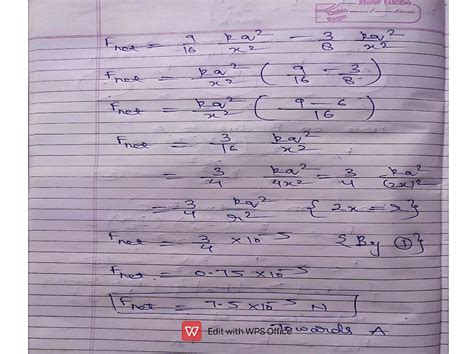 Fnet = 9/16 ka²/x² - 3/8 ka²/x²
Fnet = ka²/x² ( 9/16 - 3/8 )
Fnet = ka²/x² ( 9 - 6 / 16 )
Fnet = 3/16 ka²/x²
= 3/4 ka²/4x² = 3/4 ka²/(2x)²
= 3/4 ka²/r² { 2x = r }
Fnet = 3/4 × 10⁻⁵ { By ① }
Fnet = 0.75 × 10⁻⁵
Fnet = 7.5 × 10⁻⁵ N
W Edit with WPS Office
Towards A